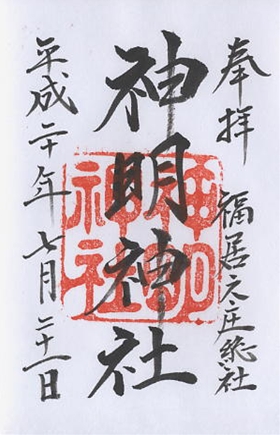 奉拝
福居之庄総社
神明神社
平成二十年七月二十一日
神明神社